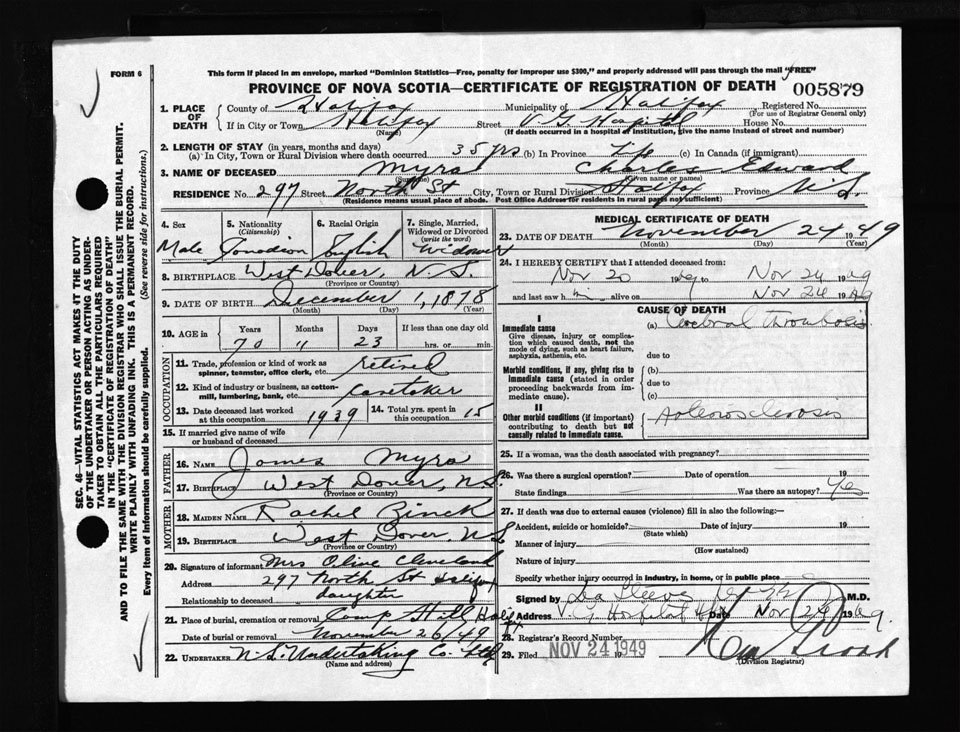 FORM 6
This form if placed in an envelope, marked "Dominion Statistics—Free, penalty for improper use $300," and properly addressed will pass through the mail "FREE"
PROVINCE OF NOVA SCOTIA—CERTIFICATE OF REGISTRATION OF DEATH 005879
1. PLACE OF DEATH County of Halifax Municipality of Halifax Registered No.
(For use of Registrar General only)
If in City or Town Halifax Street V G Hospital House No.
(Name) (If death occurred in a hospital or institution, give the name instead of street and number)
2. LENGTH OF STAY (in years, months and days)
(a) In City, Town or Rural Division where death occurred 35 yrs (b) In Province Life (c) In Canada (if immigrant)
3. NAME OF DECEASED Myra Charles Edward
(Surname) (Given name or names)
RESIDENCE No. 297 Street North St City, Town or Rural Division Halifax Province N.S.
(Residence means usual place of abode. Post Office Address for residents in rural parts not sufficient)
4. Sex 5. Nationality (Citizenship) 6. Racial Origin 7. Single, Married, Widowed or Divorced (write the word)
Male Canadian English Widower
8. BIRTHPLACE West Dover, N.S.
(Province or Country)
9. DATE OF BIRTH December 1, 1878
(Month) (Day) (Year)
10. AGE in Years Months Days If less than one day old
70 11 23 hrs. or min.
OCCUPATION
11. Trade, profession or kind of work as spinner, teamster, office clerk, etc. retired
12. Kind of industry or business, as cotton-mill, lumbering, bank, etc. caretaker
13. Date deceased last worked at this occupation 1939 14. Total yrs. spent in this occupation 15
15. If married give name of wife or husband of deceased
FATHER
16. NAME James Myra
17. BIRTHPLACE West Dover, N.S.
(Province or Country)
MOTHER
18. MAIDEN NAME Rachel
19. BIRTHPLACE West Dover, N.S.
(Province or Country)
20. Signature of informant Mrs Olive Cleveland
Address 297 North St Halifax
Relationship to deceased daughter
21. Place of burial, cremation or removal Camp Hill Halifax
Date of burial or removal November 26/49
22. UNDERTAKER N.S. Undertaking Co. Ltd
(Name and address)
MEDICAL CERTIFICATE OF DEATH
23. DATE OF DEATH November 24 1949
(Month) (Day) (Year)
24. I HEREBY CERTIFY that I attended deceased from:
Nov 20 1949 to Nov 24 1949
and last saw him alive on Nov 24 1949
CAUSE OF DEATH
I
Immediate cause (a) Cerebral thrombosis
Give disease, injury or complication which caused death, not the mode of dying, such as heart failure, asphyxia, asthenia, etc.
due to
Morbid conditions, if any, giving rise to immediate cause (stated in order proceeding backwards from immediate cause).
(b)
due to
(c)
II
Other morbid conditions (if important) contributing to death but not causally related to immediate cause. Arteriosclerosis
25. If a woman, was the death associated with pregnancy?
26. Was there a surgical operation? Date of operation 19
State findings Was there an autopsy? Yes
27. If death was due to external causes (violence) fill in also the following:—
Accident, suicide or homicide? Date of injury 19
(State which)
Manner of injury
(How sustained)
Nature of injury
Specify whether injury occurred in industry, in home, or in public place
Signed by M.D.
Address V. G. Hospital Hfx Date Nov 24 1949.
28. Registrar's Record Number
29. Filed NOV 24 1949
(Division Registrar)
SEC. 46—VITAL STATISTICS ACT MAKES IT THE DUTY
OF THE UNDERTAKER OR PERSON ACTING AS UNDER-
TAKER TO OBTAIN ALL THE PARTICULARS REQUIRED
IN THE "CERTIFICATE OF REGISTRATION OF DEATH"
AND TO FILE THE SAME WITH THE DIVISION REGISTRAR WHO SHALL ISSUE THE BURIAL PERMIT.
WRITE PLAINLY WITH UNFADING INK. THIS IS A PERMANENT RECORD.
Every item of information should be carefully supplied. (See reverse side for instructions.)